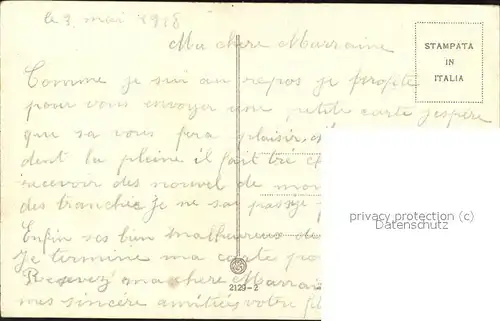 le 3 mai 1918
Ma chere Marraine
STAMPATA
IN
ITALIA
Comme je sui au repos je profite
pour vous envoyer une petite carte j'espère
que sa vous fera plaisir
dent la pleine il fait tré
recevoir des nouvel de mon
des tranchée je ne sai pas si je
Enfin ses bien malheureux de
Je termine ma carte
Recevez ma chere Marrai
mes sincère amitiés votre
2129-2
privacy protection (c)
Datenschutz